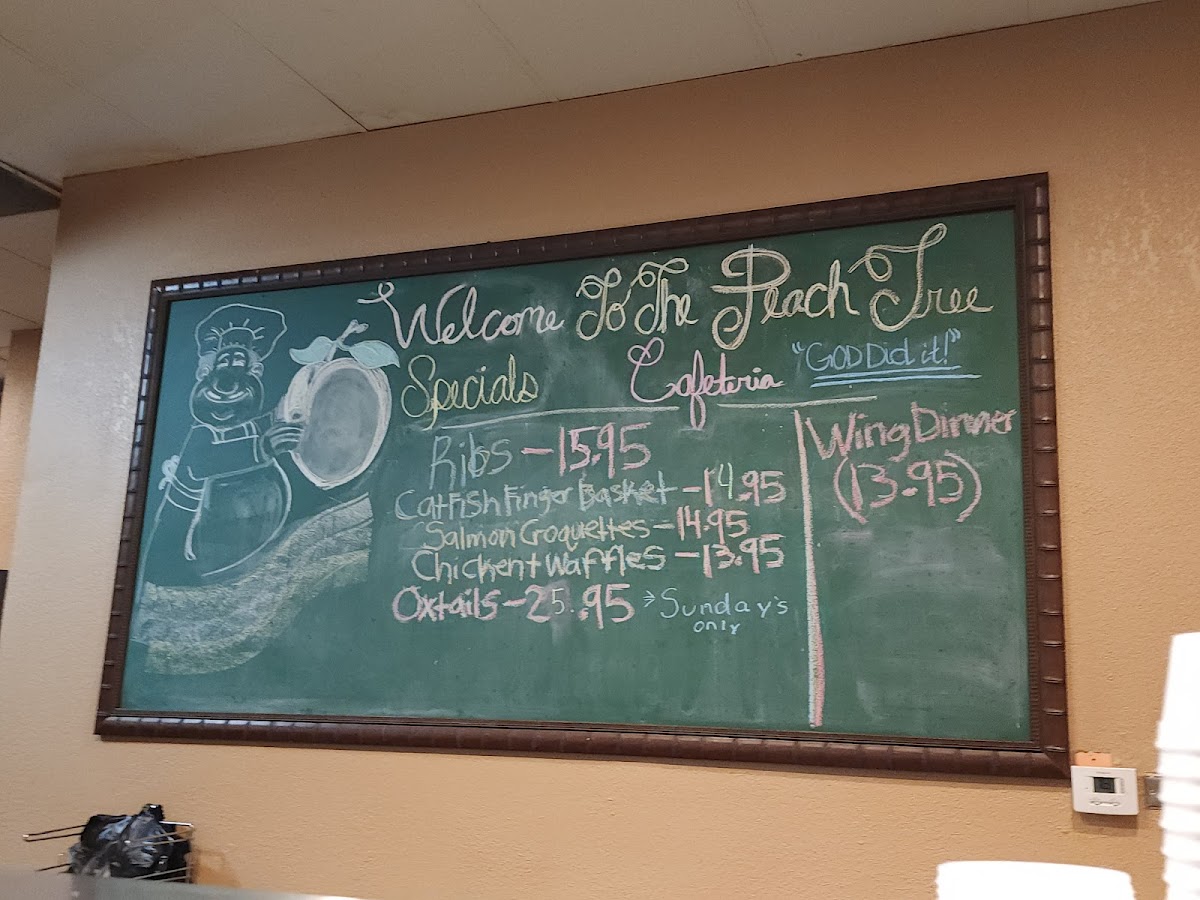 Welcome To The Peach Tree
Specials Cafeteria "GOD Did it!"
Ribs - 15.95
Catfish Finger Basket - 14.95
Salmon Croquettes - 14.95
Chicken + Waffles - 13.95
Oxtails - 25.95 → Sunday's
only
Wing Dinner
(13.95)